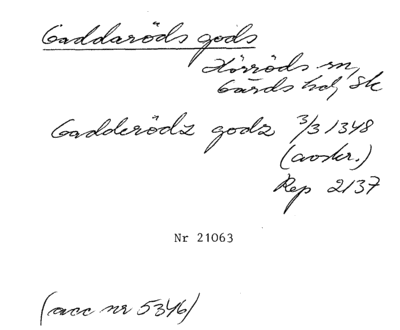 Gaddaröds gods
Hörröds sn,
Gärds hd, Sk
Gadderödz godz 3/3 1348
(avskr.)
Rep 2137
Nr 21063
(acc nr 5346)